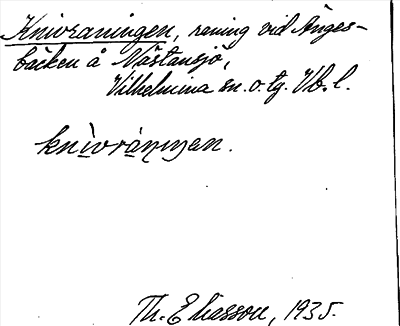 Knivraningen, raning vid Änges-
bäcken å Nästansjö,
Vilhelmina sn. o. tg. Vb. l.
knìvrániŋen.
Th. Eliasson, 1935.